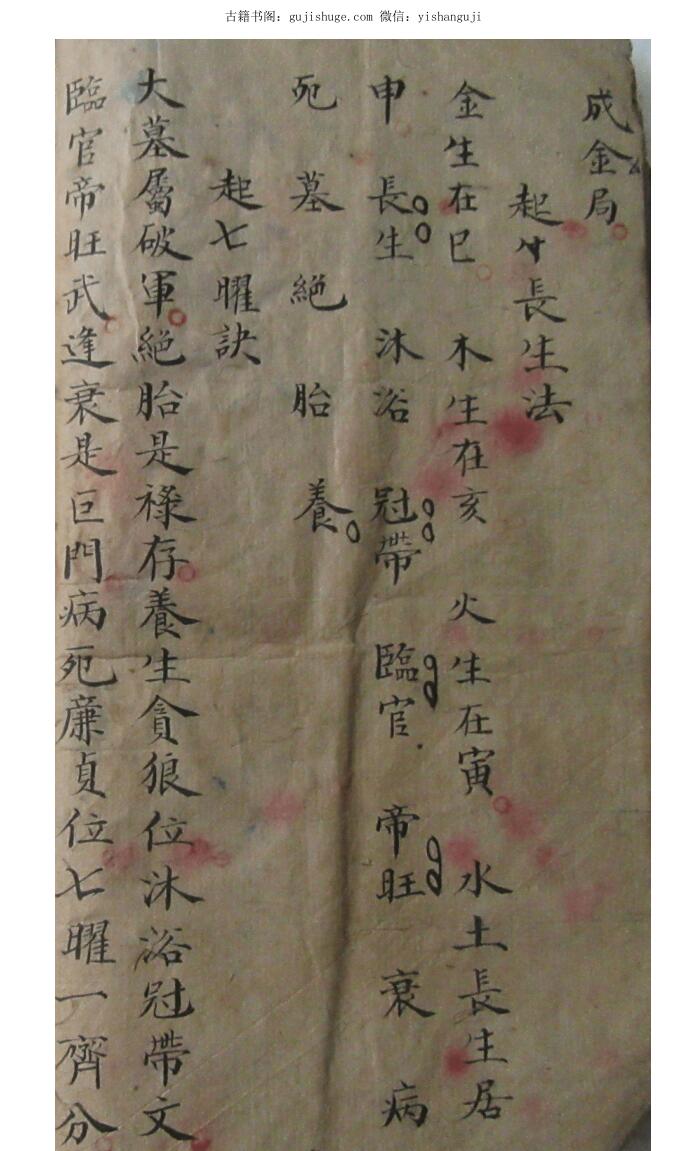 古籍书阁：gujishuge.com 微信：yishanguji
成金局
起 長生法
金生在巳 木生在亥 火生在寅 水土長生居
申 長生 沐浴 冠帶 臨官 帝旺 衰 病
死 墓 絕 胎 養
起七曜訣
大墓屬破軍絕胎是祿存養生貪狼位沐浴冠帶文
臨官帝旺武逢衰是巨門病死廉貞位七曜一齊分